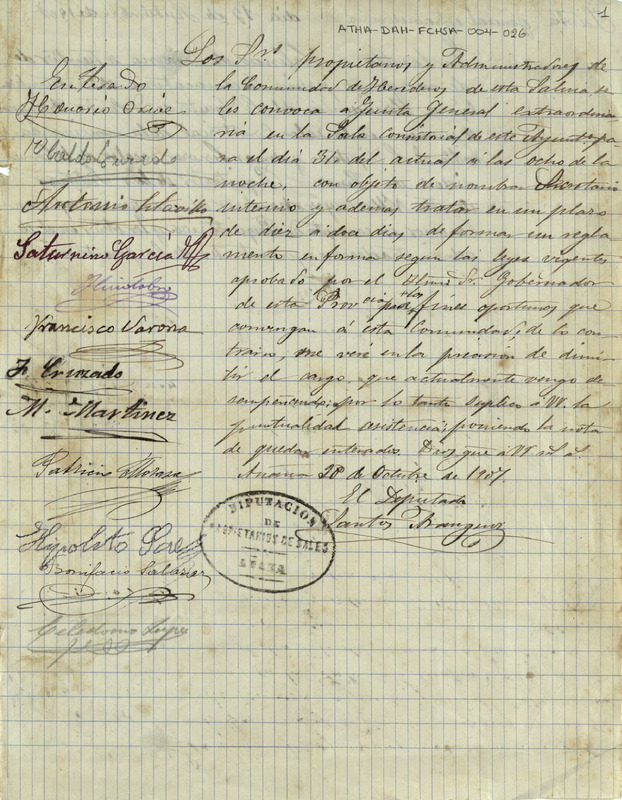 1
ATHA-DAH-FCHSA-004-026
Los Srs propietarios y Administradores de
la Comunidad de Herederos de esta Salina se
les convoca a Junta General extraordina
ria en la Sala consistorial de este Ayuntº pa
ra el dia 31 del actual a las ocho de la
noche, con objeto de nombrar Secretario
interino y ademas tratar en un plazo
de diez a doce dias de formar un regla
mento en forma segun las leyes vigentes
aprobado por el Iltmo Sr. Gobernador
de esta Provincia para los fines oportunos que
convengan á esta Comunidad; de lo con
trario, me veré en la precision de dimi
tir el cargo, que actualmente vengo de
sempeñando; por lo tanto suplico á VV. la
puntualidad asistencia; poniendo la nota
de quedar enterados. Dios gue á VV
Anana 28 de Octubre de 1907
El Diputado
Santos Aranguiz
DIPUTACION
DE
PROPIETARIOS DE SALES
AÑANA
Enterado
Honorio
Ubaldo Conzado
Antonio
Saturnino García
Francisco Varona
F. Cruzado
M. Martinez
Patricio
Hipolito Saez
Bonifacio Salazar
Celedonio Lopez